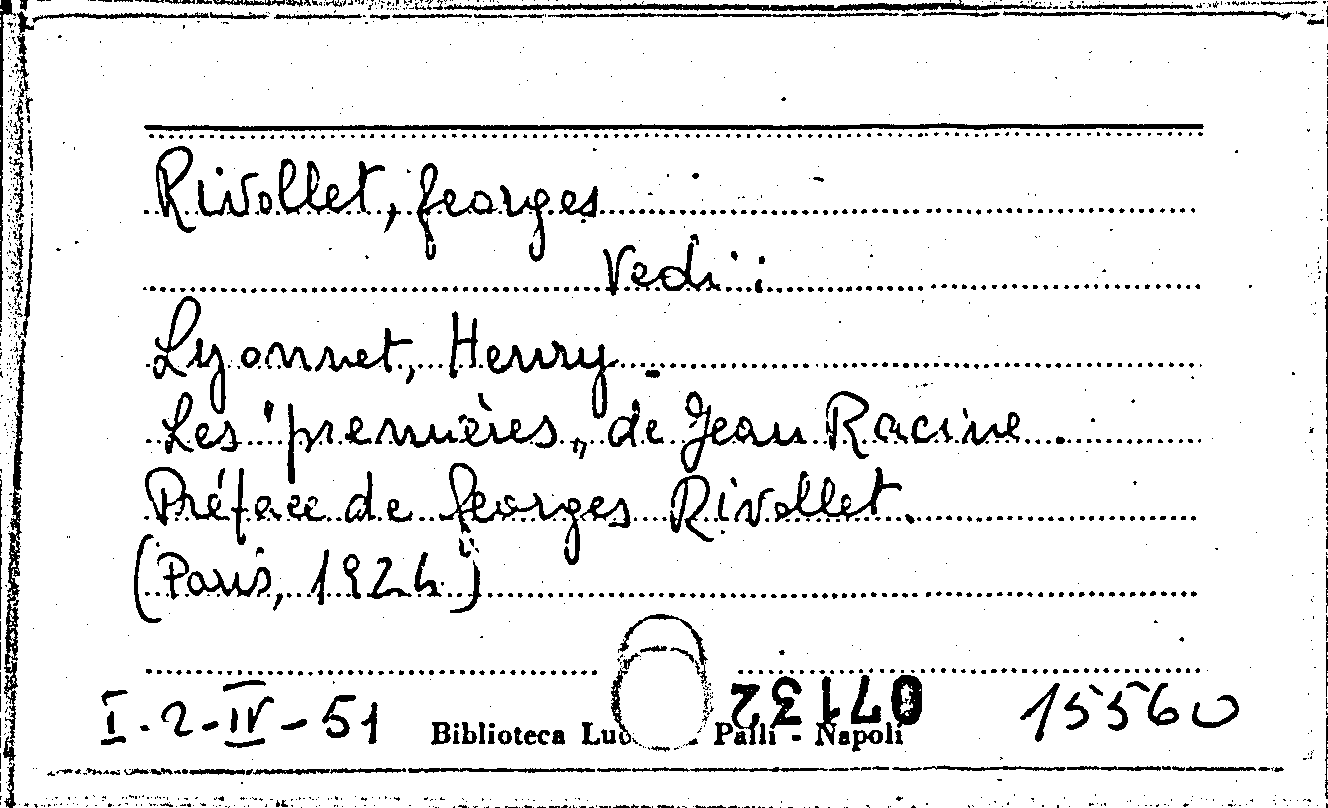 Rivollet, Georges
Vedi:
Lyonnet, Henry.
Les "premières„ de Jean Racine.
Préface de Georges Rivollet.
(Paris, 1924)
I-2-IV-51
Biblioteca Palli - Napoli
07132
15560